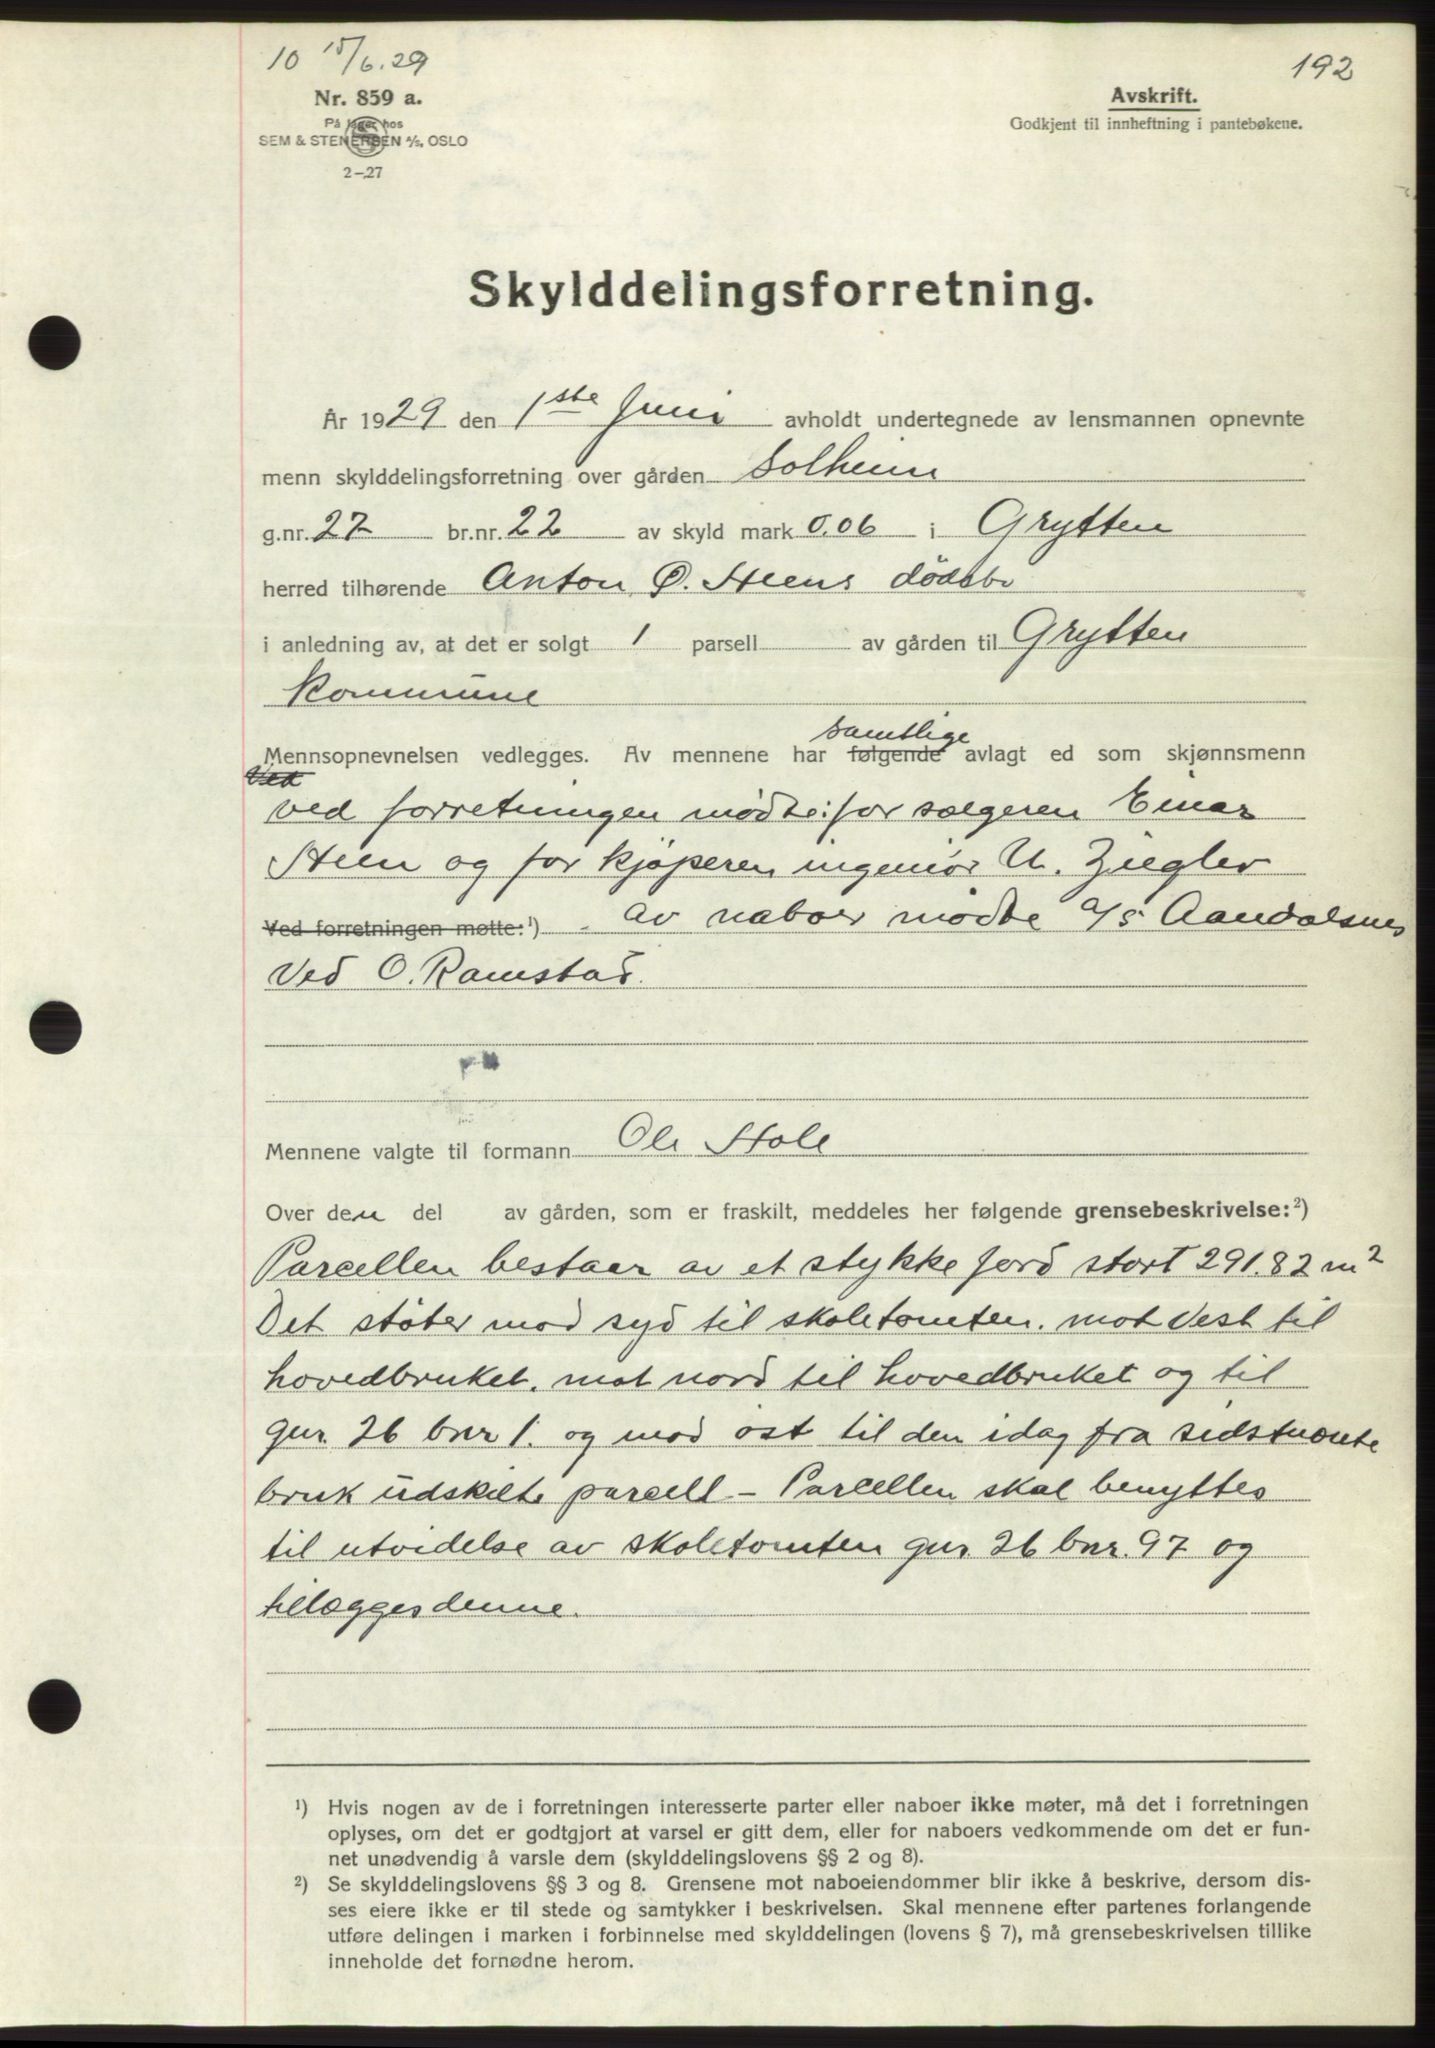 10 15/6.29
192
Nr. 859 a.
På lager hos
SEM & STENERSEN A/S, OSLO
2-27
Avskrift.
Godkjent til innheftning i pantebøkene.
Skylddelingsforretning.
År 1929 den 1ste Juni avholdt undertegnede av lensmannen opnevnte
menn skylddelingsforretning over gården Solheim
g.nr. 27 br.nr. 22 av skyld mark 0,06 i Grytten
herred tilhørende Anton O. Steens dødsbo
i anledning av, at det er solgt 1 parsell av gården til Grytten
Kommune
samtlige
Mennsopnevnelsen vedlegges. Av mennene har følgende avlagt ed som skjønnsmenn
Ved
ved forretningen mødte: for sælgeren Einar
Steen og for kjøperen ingeniør U. Ziegler
Ved forretningen møtte: 1) - av naboer mødte A/S Aandalsnes
ved O. Ramstad.
Mennene valgte til formann Ole Stole
Over den del av gården, som er fraskilt, meddeles her følgende grensebeskrivelse: 2)
Parcellen bestaar av et stykke jord stort 291.82 m2
Det støter mod syd til skoletomten. mot vest til
hovedbruket. mot nord til hovedbruket og til
gnr. 26 bnr 1. og mod øst til den idag fra sidstnævnte
bruk udskilte parcell - Parcellen skal benyttes
til utvidelse av skoletomten gnr. 26 bnr. 97 og
tillægges denne.
1) Hvis nogen av de i forretningen interesserte parter eller naboer ikke møter, må det i forretningen
oplyses, om det er godtgjort at varsel er gitt dem, eller for naboers vedkommende om det er fun-
net unødvendig å varsle dem (skylddelingslovens §§ 2 og 8).
2) Se skylddelingslovens §§ 3 og 8. Grensene mot naboeiendommer blir ikke å beskrive, dersom dis-
ses eiere ikke er til stede og samtykker i beskrivelsen. Skal mennene efter partenes forlangende
utføre delingen i marken i forbinnelse med skylddelingen (lovens § 7), må grensebeskrivelsen tillike
inneholde det fornødne herom.